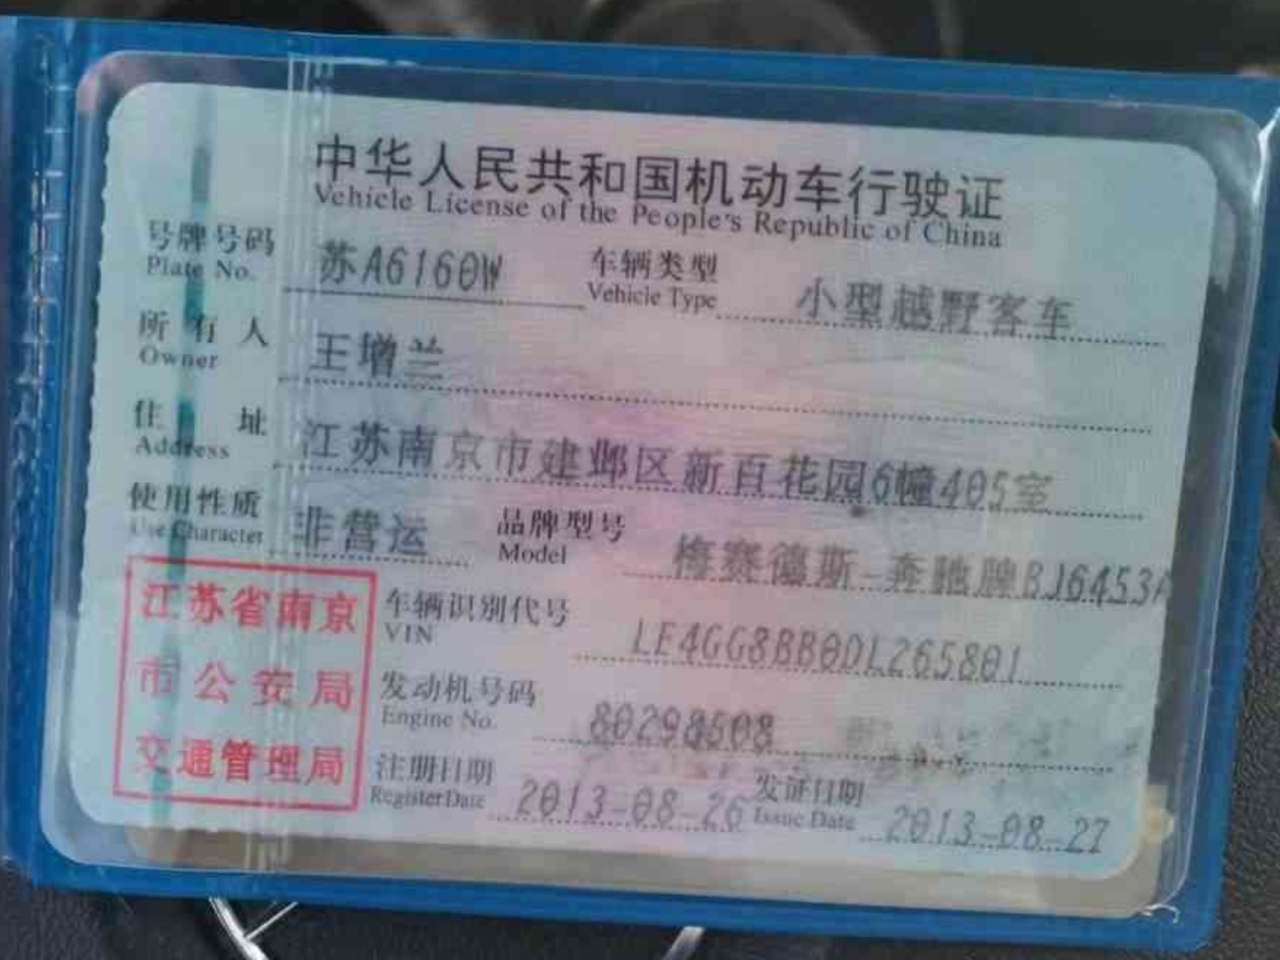 中华人民共和国机动车行驶证
Vehicle License of the People's Republic of China
号牌号码 苏A6160W 车辆类型 小型越野客车
Plate No. Vehicle Type
所有人 王增兰
Owner
住址 江苏南京市建邺区新百花园6幢405室
Address
使用性质 非营运 品牌型号 梅赛德斯-奔驰牌BJ6453A
Use Character Model
江苏省南京
市公安局
交通管理局
车辆识别代号 LE4GG8BB0DL265801
VIN
发动机号码 80298508
Engine No.
注册日期 2013-08-26 发证日期 2013-08-27
Register Date Issue Date